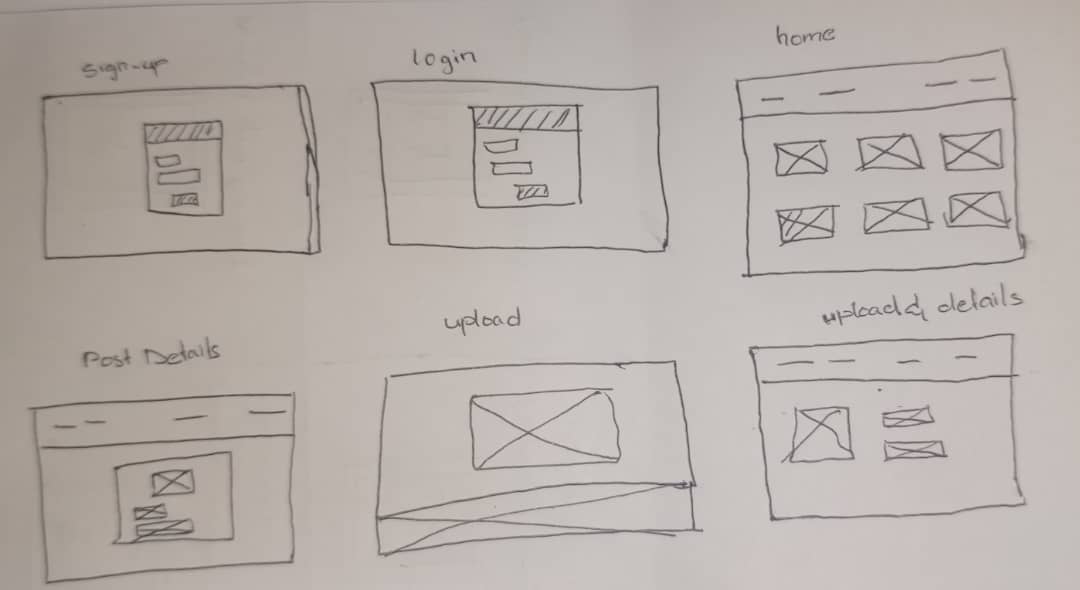 sign-up
login
home
Post Details
upload
upload & details